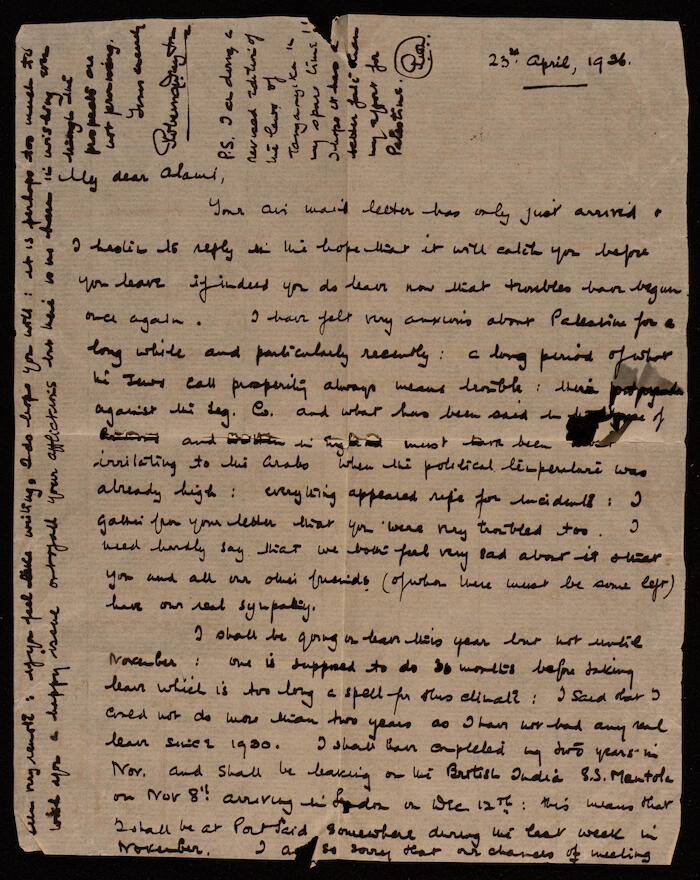 23rd April, 1936.
My dear Alami,
Your air mail letter has only just arrived &
I hasten to reply in the hope that it will catch you before
you leave if indeed you do leave now that troubles have begun
once again. I have felt very anxious about Palestine for a
long while and particularly recently: a long period of what
the Jews call prosperity always means trouble: their propaganda
against the Leg. Co. and what has been said in of
and in England must have been most
irritating to the Arabs when the political temperature was
already high: everything appeared ripe for incidents: I
gather from your letter that you were very troubled too. I
need hardly say that we both feel very sad about it & that
you and all our other friends (of whom there must be some left)
have our real sympathy.
I shall be going on leave this year but not until
November: one is supposed to do 30 months before taking
leave which is too long a spell for this climate: I said that I
could not do more than two years as I have not had any real
leave since 1930. I shall have completed my two years in
Nov. and shall be leaving on the British India S.S. Mantola
on Nov 8th arriving in London on Dec 12th: this means that
I shall be at Port Said somewhere during the last week in
November. I am so sorry that our chances of meeting
seem very remote: if you feel like writing I do hope you will: it is perhaps too much to
wish you a happy issue out of all your afflictions but there is no harm in wishing even
though the
prospects are
not promising.
Yours sincerely
P.S. I am doing a
revised edition of
the laws of
Tanganyika in
my spare time!!
I hope it has a
better fate than
my effort for
Palestine.